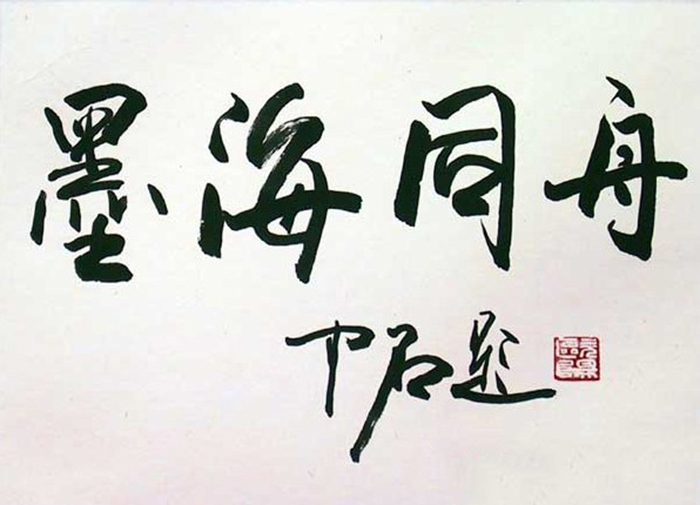 墨海同舟
中石题